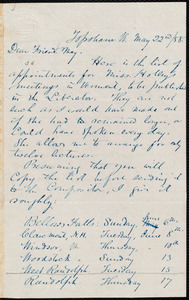 Topsham Vt. May 22nd/58.
Dear Friend May,
Here is the list of
appointments for Miss Holley's
meetings in Vermont, to be published
in the Liberator. They are not
such as I would have made out
if she had to remained longer, or
could have spoken every day.
She allows me to arrange for only
twelve lectures.
Presuming that you will
copy the list before sending it
to the Compositor, I give it
roughly.
Bellows Falls. Sunday, June 6th.
Claremont, N.H. Tuesday, June 8th
Windsor, Vt. Thursday, 10th
Woodstock. Sunday 13
West Randolph. Tuesday 15
Randolph Thursday 17